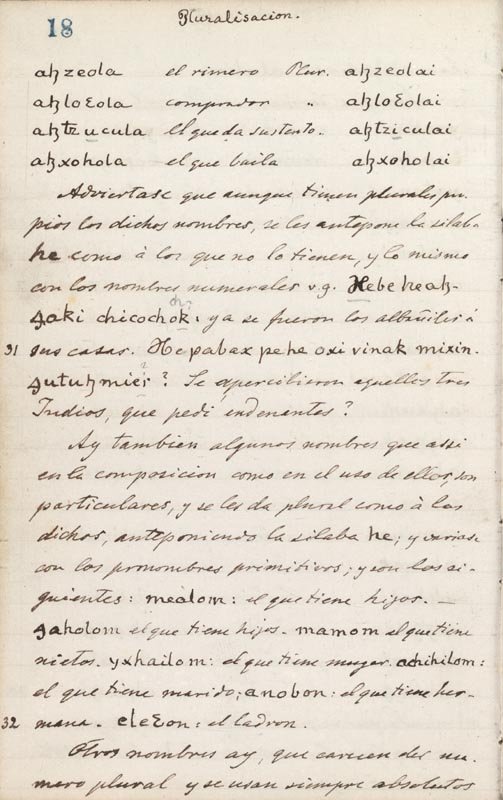 18 Pluralisacion.
aꜩzeola el rimero Plur. aꜩzeolai
aꜩloɛola comprador „ aꜩloɛolai
aꜩtzucula el que da sustento. aꜩtziculai
aꜩxohola el que baila aꜩxoholai
Adviertase que aunque tienen plurales pro-
pios los dichos nombres, se les antepone la silaba
he como à los que no lo tienen, y lo mismo
con los nombres numerales v.g. Hebe heaꜩ-
ʒaki chicochok: ya se fueron los albañiles á
31 sus casas. He pabax pehe oxi vinak mixin-
ʒutuꜩmiei? Se apercibieron aquellos tres
Indios, que pedi endenantes?
Ay tambien algunos nombres que assi
en la composicion como en el uso de ellos, son
particulares, y se les da plural como à los
dichos, anteponiendo la silaba he; y varíase
con los pronombres primitivos; y son los si-
guientes: mealom: el que tiene hijos. —
ʒaholom el que tiene hijos. mamom el que tiene
nietos. yxhailom: el que tiene muger. achihilom:
el que tiene marido; anobon: el que tiene her-
32 mana. eleɛon: el ladron.
Otros nombres ay, que carecen del nu-
mero plural y se usan siempre absolutos